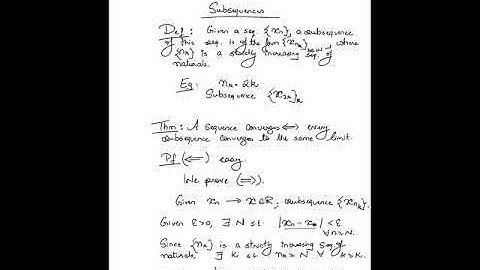 Subsequences
Def: Given a seq. {xₙ}, a subsequence
of this seq. is of the form {xₙₖ}, where
{nₖ} is a strictly increasing seq. of
naturals.
Eg: nₖ = 2k
Subsequence {x₂ₖ}ₖ
Thm: A sequence converges ⟺ every
subsequence converges to the same limit.
Pf (⟸) easy.
We prove (⟹).
Given xₙ → x ∈ ℝ, subsequence {xₙₖ}.
Given ε>0, ∃ N st. |xₙ - x| < ε
∀ n ≥ N.
Since {nₖ} is a strictly increasing seq. of
naturals, ∃ K st nₖ ≥ N ∀ k ≥ K.